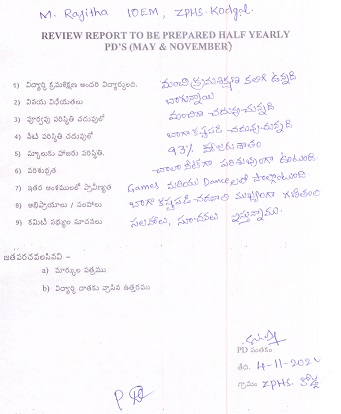 M. Rajitha IOEM, ZPHS-Kodgal
REVIEW REPORT TO BE PREPARED HALF YEARLY
PD'S (MAY & NOVEMBER)
1) విద్యార్థి క్రమశిక్షణ అందరి విద్యార్థులది. మంచి క్రమశిక్షణ కలిగి ఉన్నది
2) వినయ విధేయతలు బాగున్నాయి
3) పూర్వపు పరిస్థితి చదువులో మంచిగా చదువు-చున్నది
4) నేటి పరిస్థితి చదువులో బాగా కష్టపడి చదువు-చున్నది
5) స్కూలుకు హాజరు పరిస్థితి. 93% హాజరు శాతం
6) పరిశుభ్రత చాలా నీట్‌గా పరిశుభ్రంగా ఉంటుంది
7) ఇతర అంశములలో ప్రావీణ్యత Games మరియు Dance లలో పాల్గొంటుంది
8) అభిప్రాయాలు / సలహాలు బాగా కష్టపడి చదవాలి ముఖ్యంగా గణితం
9) కమిటీ సభ్యుల సూచనలు సలహాలు, సూచనలు ఇస్తున్నాము.
జతపరచవలసినవి -
a) మార్కుల పత్రము
b) విద్యార్థి దాతకు వ్రాసిన ఉత్తరము
PD సంతకం
తేది. 4-11-2021
గ్రామం ZPHS.